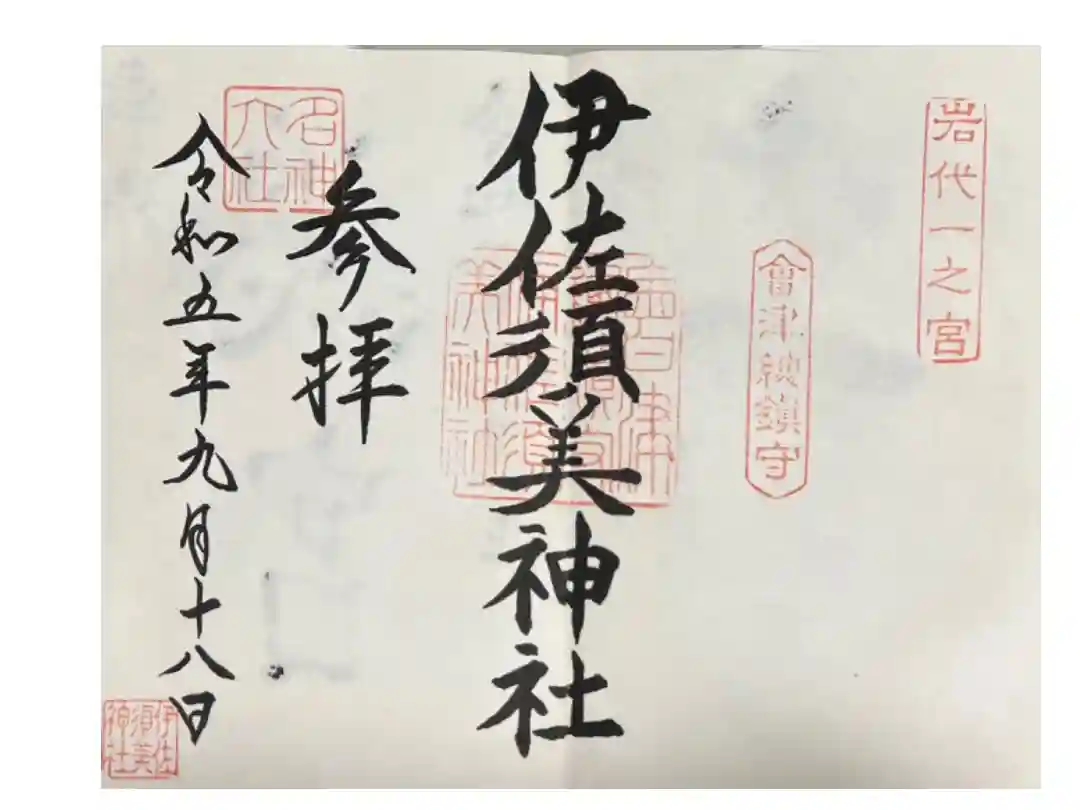 岩代一之宮
會津總鎮守
伊佐須美神社
美神社
参拝
名神
大社
令和五年九月十八日
伊佐
須美
神社